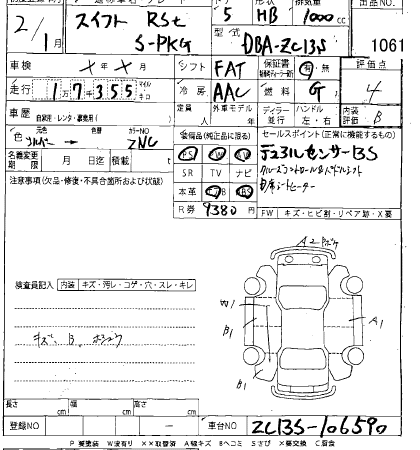 5 HB 1000cc
2/1月 スイフト RSt
S-PKG
型式 DBA-ZC13S
1061
車検 メ年メ月 シフト FAT 保証書 有・無 評価点
走行 17355 マイル キロ 冷房 AAC 燃料 G 4
車歴 自家用・レンタ・事業用 定員 人 外車モデル 年 ディーラー 並行 ハンドル 左・右 内装 評価 B
色 元色 シルバー 色替 カラーNO ZNC 装備品(純正品に限る) セールスポイント(正常に機能するもの)
名義変更期限 月 日迄 積載 t PS AW PW デュアルセンサーBS
注意事項(欠品・修復・不具合箇所および状態) SR TV ナビ
本革 エアB ABS シートヒーター
R券 9380 円 FW キズ・ヒビ割・リペア跡・X要
A2
検査員記入 内装 キズ・汚レ・コゲ・穴・スレ・キレ
W1
B1 A1
キズ、B、
B1
長さ cm 幅 cm 高さ cm
登録NO - 車台NO ZC13S-106590
P 要塗装 W波有り ××取替済 A線キズ Bヘコミ Sさび X要交換 C腐食